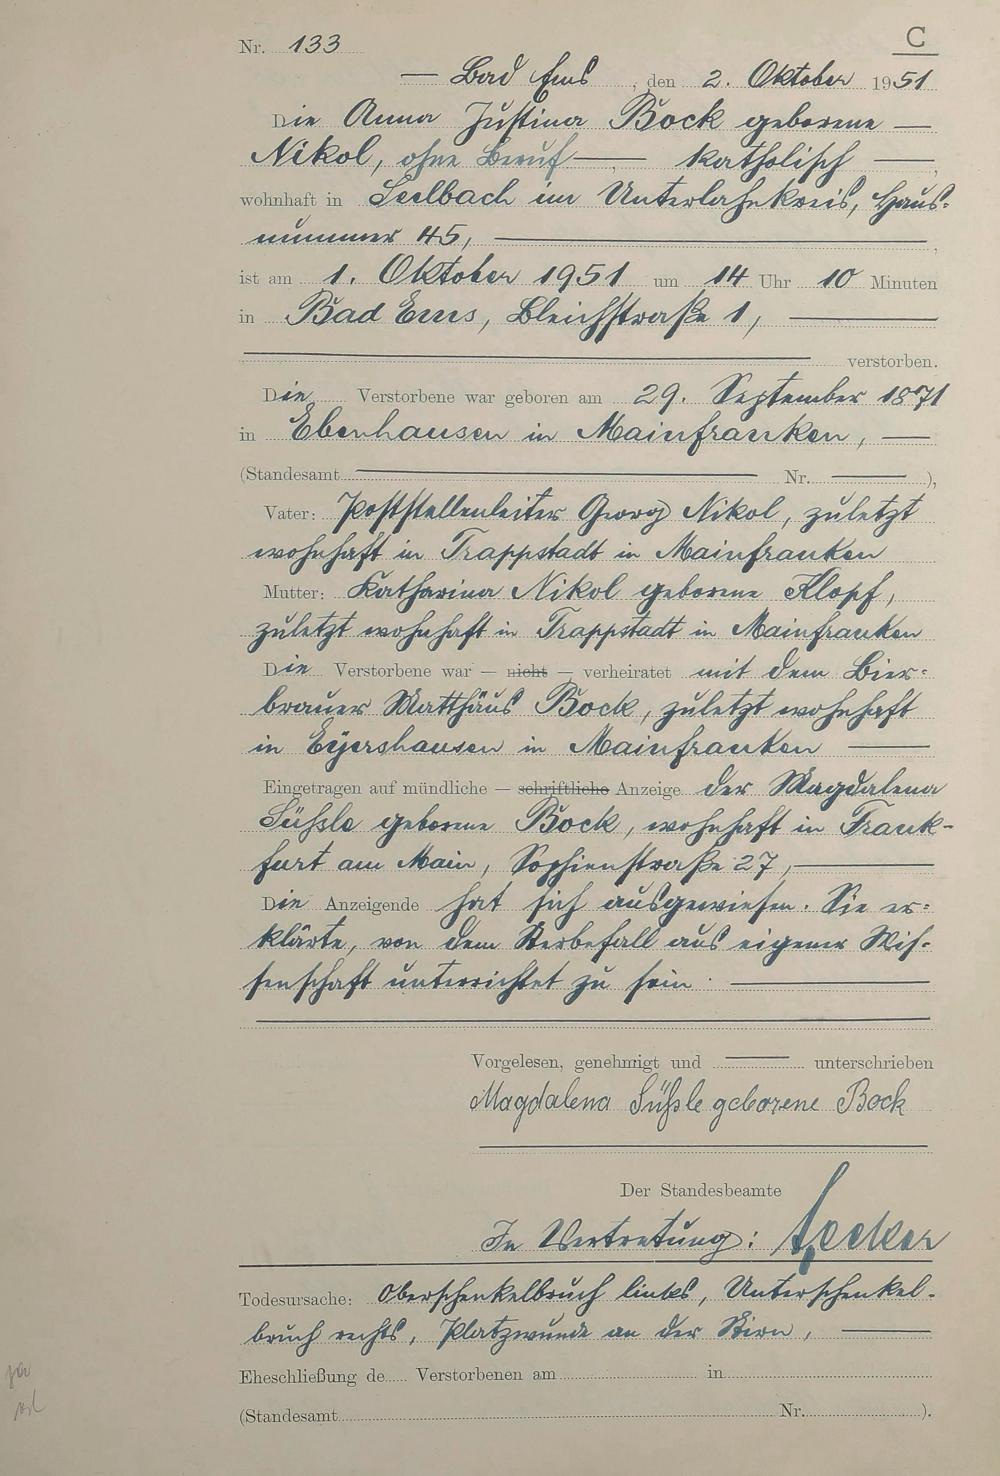 C
Nr. 133
— Bad Ems, den 2. Oktober 1951
Die Anna Justina Bock geborene —
Nikol, ohne Beruf — katholisch —,
wohnhaft in Seelbach im Unterlahnkreis, Haus-
nummer 45, —,
ist am 1. Oktober 1951 um 14 Uhr 10 Minuten
in Bad Ems, Bleichstraße 1, —
— verstorben.
Die Verstorbene war geboren am 29. September 1871
in Ebenhausen in Mainfranken, —
(Standesamt — Nr. — ),
Vater: Poststellenleiter Georg Nikol, zuletzt
wohnhaft in Trappstadt in Mainfranken
Mutter: Katharina Nikol geborene Klopf,
zuletzt wohnhaft in Trappstadt in Mainfranken
Die Verstorbene war — nicht — verheiratet mit dem Bier-
brauer Matthäus Bock, zuletzt wohnhaft
in Eyershausen in Mainfranken —
Eingetragen auf mündliche — schriftliche Anzeige der Magdalena
Süßle geborene Bock, wohnhaft in Frank-
furt am Main, Sophienstraße 27, —
Die Anzeigende hat sich ausgewiesen. Sie er-
klärte, von dem Sterbefall aus eigener Wis-
senschaft unterrichtet zu sein. —
Vorgelesen, genehmigt und — unterschrieben
Magdalena Süßle geborene Bock
Der Standesbeamte
In Vertretung:
Todesursache: Oberschenkelbruch links, Unterschenkel-
bruch rechts, Platzwunde an der Stirn, —
Eheschließung de..... Verstorbenen am ..... in .....
(Standesamt ..... Nr. ..... ).